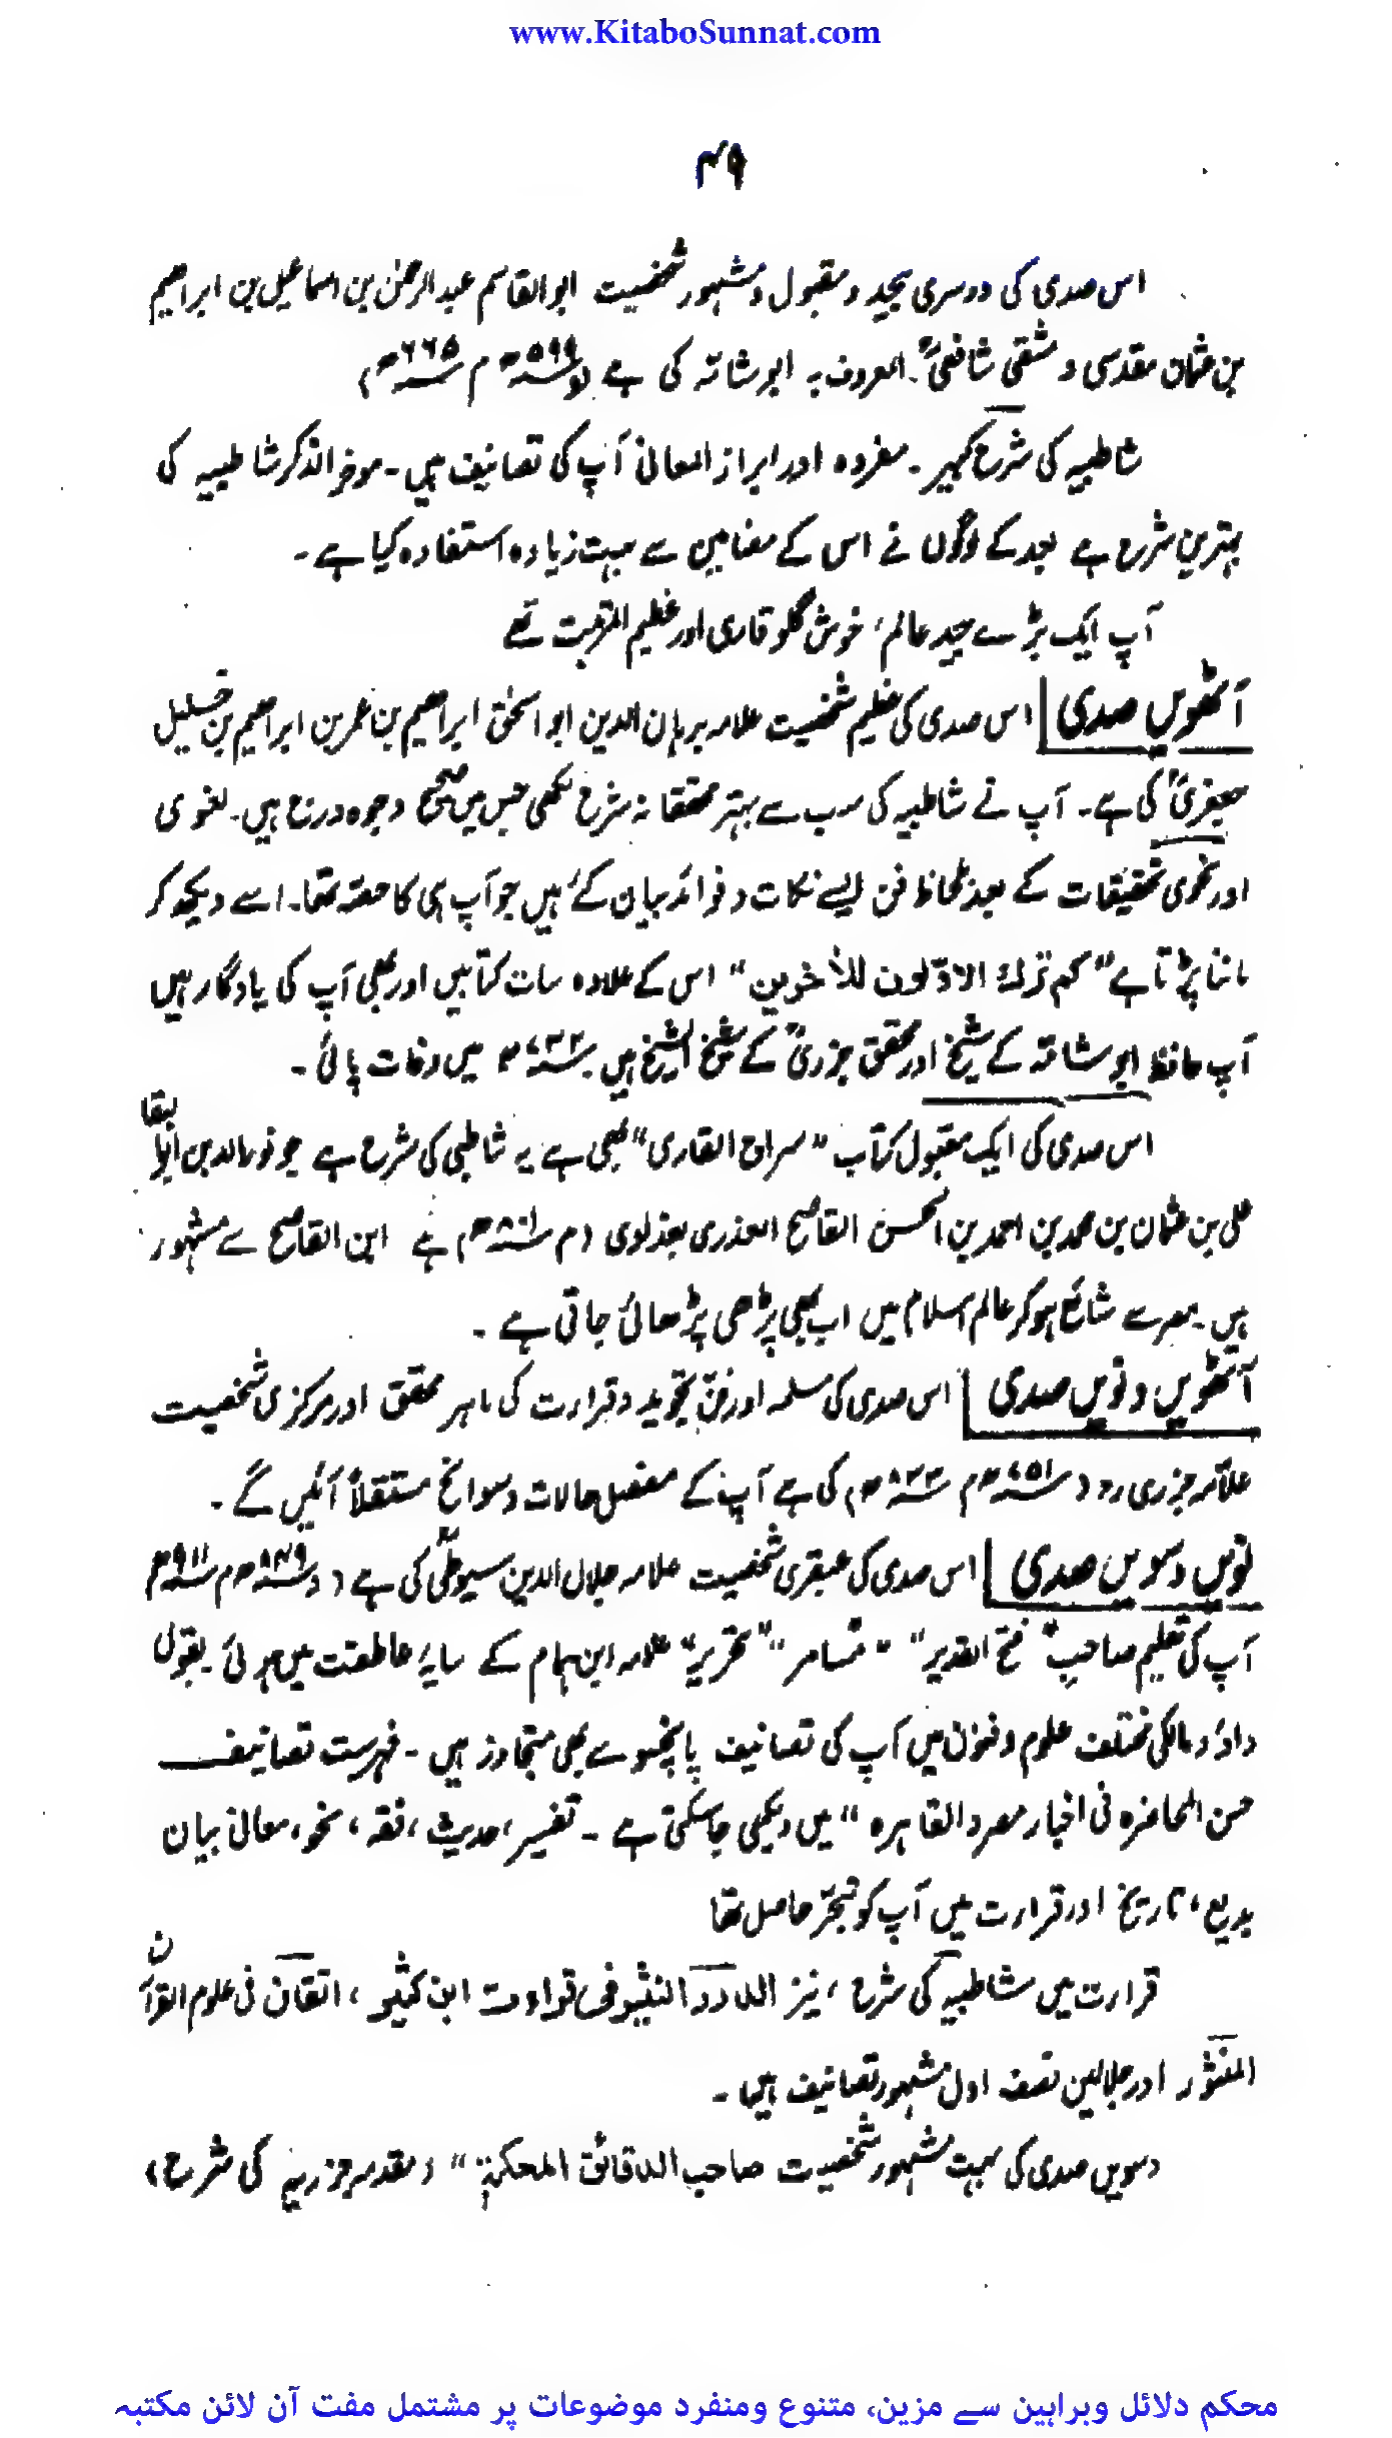 www.KitaboSunnat.com
۴۹
اس صدی کی دوسری جید و مقبول و مشہور شخصیت ابوالقاسم عبدالرحمٰن بن اسماعیل بن ابراہیم
بن عثمان مقدسی دمشقی شافعیؒ۔ المعروف بہ ابوشامہ کی ہے (و ۵۹۹ھ م ۶۶۵ھ)
شاطبیہ کی شرح کبیر۔ مفردہ اور ابراز المعانی آپ کی تصانیف ہیں۔ موخر الذکر شاطبیہ کی
بہترین شرح ہے بعد کے لوگوں نے اس کے مضامین سے بہت زیادہ استفادہ کیا ہے۔
آپ ایک بڑے جید عالم، خوش گلو قاری اور عظیم المرتبت تھے
آٹھویں صدی اس صدی کی عظیم شخصیت علامہ برہان الدین ابو اسحٰق ابراہیم بن عمر بن ابراہیم بن خلیل
جعبریؒ کی ہے۔ آپ نے شاطبیہ کی سب سے بہتر محققانہ شرح لکھی جس میں صحیح وجوہ درج ہیں۔ لغوی
اور نحوی تحقیقات کے بعد بلحاظ فن ایسے نکات و فوائد بیان کئے ہیں جو آپ ہی کا حصہ تھا۔ اسے دیکھ کر
ماننا پڑتا ہے "کم ترك الاوّلون للأخرین" اس کے علاوہ سات کتابیں اور بھی آپ کی یادگار ہیں
آپ حافظ ابو شامہ کے شیخ اور محقق جزریؒ کے شیخ الشیخ ہیں ۷۳۲ھ میں وفات پائی۔
اس صدی کی ایک مقبول کتاب "سراج القاری" بھی ہے یہ شاطبی کی شرح ہے جو نورالدین ابوالبقا
علی بن عثمان بن محمد بن احمد بن الحسن القاصح العذری بغدادی (م ۸۰۱ھ) ہے ابن القاصح سے مشہور
ہیں۔ مصر سے شائع ہو کر عالم اسلام میں اب بھی پڑھی پڑھائی جاتی ہے۔
آٹھویں و نویں صدی اس صدی کی مسلمہ اور فنِ تجوید و قرارت کی ماہر محقق اور مرکزی شخصیت
علامہ جزری رح (۷۵۱ھ م ۸۳۳ھ) کی ہے آپ کے مفصل حالات و سوانح مستقلاً آئیں گے۔
نویں دسویں صدی اس صدی کی عبقری شخصیت علامہ جلال الدین سیوطیؒ کی ہے (و ۸۴۹ھ م ۹۱۱ھ)
آپ کی تعلیم صاحبِ "فتح القدیر" "مسامر" "تحریر" علامہ ابن ہمام کے سایۂ عاطفت میں ہوئی۔ بقول
داؤد مالکی مختلف علوم و فنون میں آپ کی تصانیف پانچسو سے بھی متجاوز ہیں۔ فہرست تصانیف
حسن المحاضرہ فی اخبار مصر و القاہرہ" میں دیکھی جاسکتی ہے۔ تفسیر، حدیث، فقہ، نحو، معانی بیان
بدیع، تاریخ اور قرارت میں آپ کو تبحّر حاصل تھا
قرارت میں شاطبیہ کی شرح، نیز الدرر النثیر فی قراءت ابن کثیر، اتقان فی علوم القرآن
المنثور اور جلالین نصف اول مشہور تصانیف ہیں۔
دسویں صدی کی بہت مشہور شخصیت صاحب الدقائق المحکمۃ" (مقدمہ جزریہ کی شرح)
محکم دلائل وبراہین سے مزین، متنوع ومنفرد موضوعات پر مشتمل مفت آن لائن مکتبہ